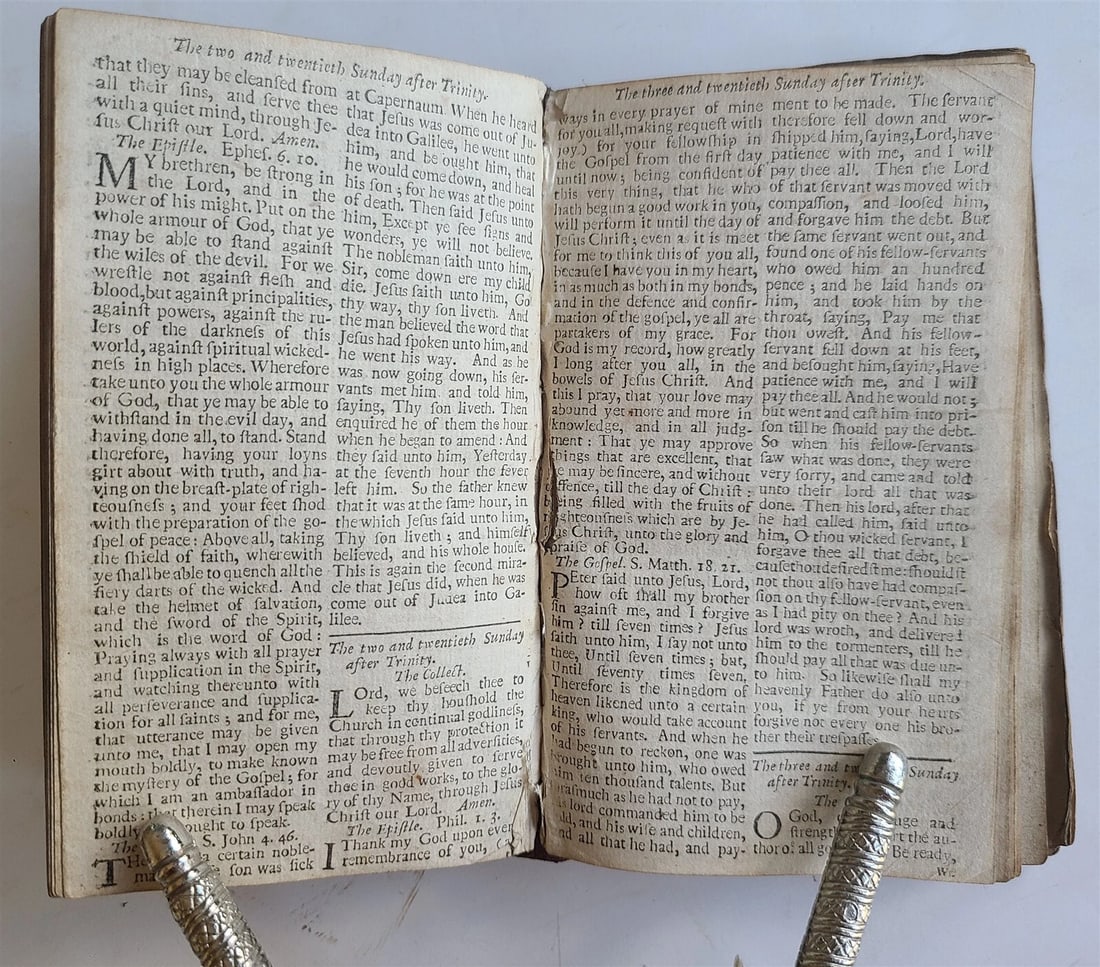 The two and twentieth Sunday after Trinity.
that they may be cleanſed from
all their ſins, and ſerve thee
with a quiet mind, through Je-
ſus Chriſt our Lord. Amen.
The Epiſtle. Epheſ. 6. 10.
MY brethren, be ſtrong in
the Lord, and in the
power of his might. Put on the
whole armour of God, that ye
may be able to ſtand againſt
the wiles of the devil. For we
wreſtle not againſt fleſh and
blood, but againſt principalities,
againſt powers, againſt the ru-
lers of the darkneſs of this
world, againſt ſpiritual wicked-
neſs in high places. Wherefore
take unto you the whole armour
of God, that ye may be able to
withſtand in the evil day, and
having done all, to ſtand. Stand
therefore, having your loyns
girt about with truth, and ha-
ving on the breaſt-plate of righ-
teouſneſs; and your feet ſhod
with the preparation of the go-
ſpel of peace: Above all, taking
the ſhield of faith, wherewith
ye ſhall be able to quench all the
fiery darts of the wicked. And
take the helmet of ſalvation,
and the ſword of the Spirit,
which is the word of God:
Praying always with all prayer
and ſupplication in the Spirit,
and watching thereunto with
all perſeverance and ſupplica-
tion for all ſaints; and for me,
that utterance may be given
unto me, that I may open my
mouth boldly, to make known
the myſtery of the Goſpel; for
which I am an ambaſſador in
bonds: that therein I may ſpeak
boldly ought to ſpeak.
The S. John 4. 46.
THe certain noble-
ma ſon was ſick
at Capernaum. When he heard
that Jeſus was come out of Ju-
dea into Galilee, he went unto
him, and beſought him, that
he would come down, and heal
his ſon; for he was at the point
of death. Then ſaid Jeſus unto
him, Except ye ſee ſigns and
wonders, ye will not believe.
The nobleman ſaith unto him,
Sir, come down ere my child
die. Jeſus ſaith unto him, Go
thy way, thy ſon liveth. And
the man believed the word that
Jeſus had ſpoken unto him, and
he went his way. And as he
was now going down, his ſer-
vants met him and told him,
ſaying, Thy ſon liveth. Then
enquired he of them the hour
when he began to amend: And
they ſaid unto him, Yeſterday
at the ſeventh hour the fever
left him. So the father knew
that it was at the ſame hour, in
the which Jeſus ſaid unto him,
Thy ſon liveth; and himſelf
believed, and his whole houſe.
This is again the ſecond mira-
cle that Jeſus did, when he was
come out of Judea into Ga-
lilee.
The two and twentieth Sunday
after Trinity.
The Collect.
LOrd, we beſeech thee to
keep thy houſhold the
Church in continual godlineſs,
that through thy protection it
may be free from all adverſities,
and devoutly given to ſerve
thee in good works, to the glo-
ry of thy Name, through Jeſus
Chriſt our Lord. Amen.
The Epiſtle. Phil. 1. 3.
I Thank my God upon every
remembrance of you, (al
The three and twentieth Sunday after Trinity.
ways in every prayer of mine
for you all, making requeſt with
joy) for your fellowſhip in
the Goſpel from the firſt day
until now; being confident of
this very thing, that he who
hath begun a good work in you,
will perform it until the day of
Jeſus Chriſt; even as it is meet
for me to think this of you all,
becauſe I have you in my heart,
in as much as both in my bonds,
and in the defence and confir-
mation of the goſpel, ye all are
partakers of my grace. For
God is my record, how greatly
I long after you all, in the
bowels of Jeſus Chriſt. And
this I pray, that your love may
abound yet more and more in
knowledge, and in all judg-
ment: That ye may approve
things that are excellent, that
ye may be ſincere, and without
offence, till the day of Chriſt:
being filled with the fruits of
righteouſneſs which are by Je-
ſus Chriſt, unto the glory and
praiſe of God.
The Goſpel. S. Matth. 18. 21.
PEter ſaid unto Jeſus, Lord,
how oft ſhall my brother
ſin againſt me, and I forgive
him? till ſeven times? Jeſus
ſaith unto him, I ſay not unto
thee, Until ſeven times; but,
Until ſeventy times ſeven.
Therefore is the kingdom of
heaven likened unto a certain
king, who would take account
of his ſervants. And when he
had begun to reckon, one was
brought unto him, who owed
him ten thouſand talents. But
foraſmuch as he had not to pay,
his lord commanded him to be
ſold, and his wife and children,
and all that he had, and pay-
ment to be made. The ſervant
therefore fell down and wor-
ſhipped him, ſaying, Lord, have
patience with me, and I will
pay thee all. Then the Lord
of that ſervant was moved with
compaſſion, and looſed him,
and forgave him the debt. But
the ſame ſervant went out, and
found one of his fellow-ſervants
who owed him an hundred
pence; and he laid hands on
him, and took him by the
throat, ſaying, Pay me that
thou oweſt. And his fellow-
ſervant fell down at his feet,
and beſought him, ſaying, Have
patience with me, and I will
pay thee all. And he would not;
but went and caſt him into pri-
ſon till he ſhould pay the debt.
So when his fellow-ſervants
ſaw what was done, they were
very ſorry, and came and told
unto their lord all that was
done. Then his lord, after that
he had called him, ſaid unto
him, O thou wicked ſervant, I
forgave thee all that debt, be-
cauſe thou deſiredſt me: ſhouldſt
not thou alſo have had compaſ-
ſion on thy fellow-ſervant, even
as I had pity on thee? And his
lord was wroth, and delivered
him to the tormenters, till he
ſhould pay all that was due un-
to him. So likewiſe ſhall my
heavenly Father do alſo unto
you, if ye from your hearts
forgive not every one his bro-
ther their treſpaſſes.
The three and tw Sunday
after Trinity.
The
O God, uge and
ſtrengt rt the au-
thor of all go Be ready,
we